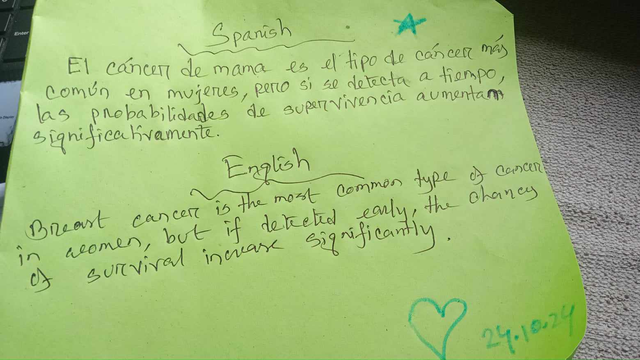 Spanish
El cáncer de mama es el tipo de cáncer más
común en mujeres, pero si se detecta a tiempo,
las probabilidades de supervivencia aumentan
significativamente.
English
Breast cancer is the most common type of cancer
in women, but if detected early, the chances
of survival increase significantly.
24.10.24